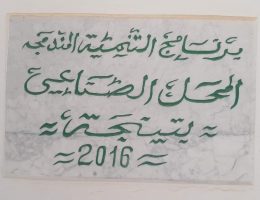 برنامج التنمية المندمجة
المحل الصناعي
بتينجة
2016